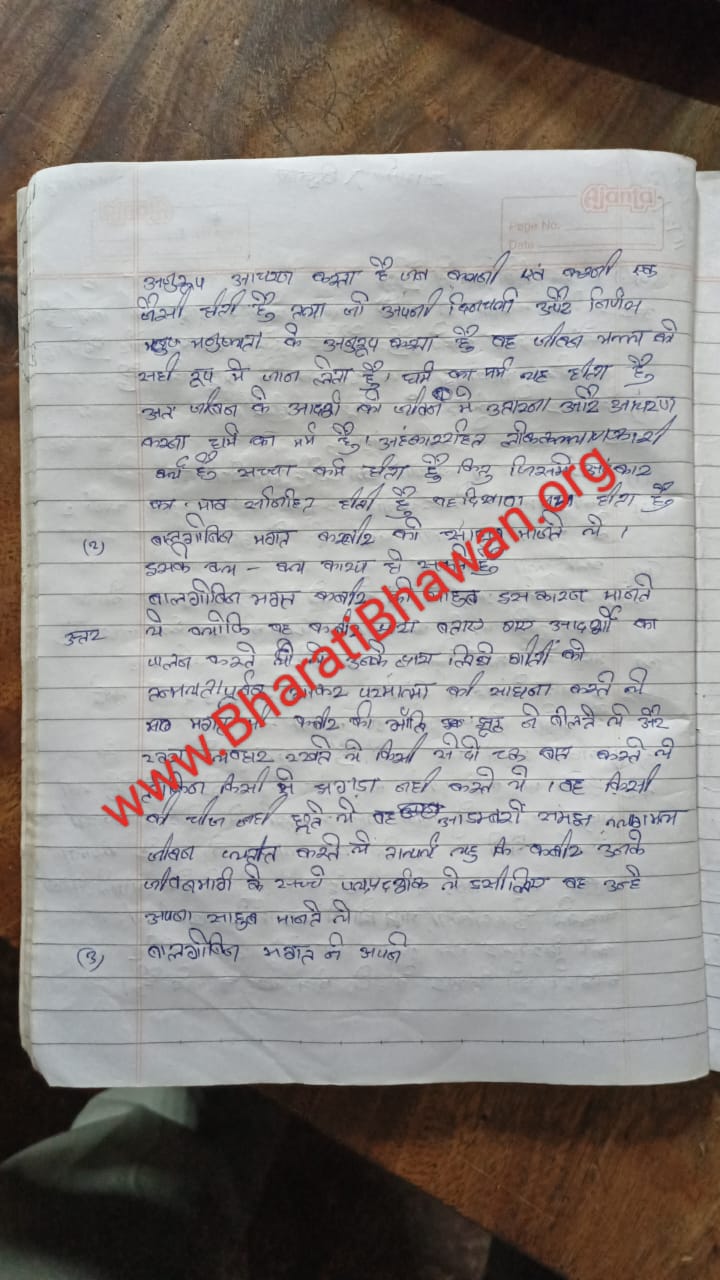 Ajanta
Page No.
Date
अनुरूप आचरण करता है जब कथनी एवं करनी एक
जैसी होती है तथा जो अपनी दिनचर्या और निर्णय
मनुष्यता के अनुरूप करता है वह जीवन को
सही रूप में जान लेता है। धर्म का मर्म यह होता है
अतः जीवन के आदर्शों को जीवन में उतारना और आचरण
करना धर्म का मर्म है। अहंकाररहित लोककल्याणकारी
कर्म ही सच्चा धर्म होता है किंतु जिसमें अहंकार
का भाव होती है वह दिखावा होता है
(2) बालगोबिन भगत कबीर को साहब मानते थे।
इसके क्या - क्या कारण हो सकते हैं
उत्तर बालगोबिन भगत कबीर को साहब इस कारण मानते
थे क्योंकि वह कबीर द्वारा बताए गए आदर्शों का
पालन करते थे उनके द्वारा लिखे गीतों को
तन्मयतापूर्वक गाकर परमात्मा की साधना करते थे
भगत कबीर की भाँति झूठ ने बोलते थे और
खरा व्यवहार रखते थे किसी से दो टूक बात करते थे
लेकिन किसी से झगड़ा नहीं करते थे। वह किसी
की चीज नहीं छूते थे वह आडम्बरों
जीवन व्यतीत करते थे तात्पर्य यह कि कबीर उनके
जीवनमार्ग के सच्चे पथप्रदर्शक थे इसीलिए वह उन्हें
अपना साहब मानते थे
(3) बालगोबिन भगत ने अपनी
www.BharatiBhawan.org